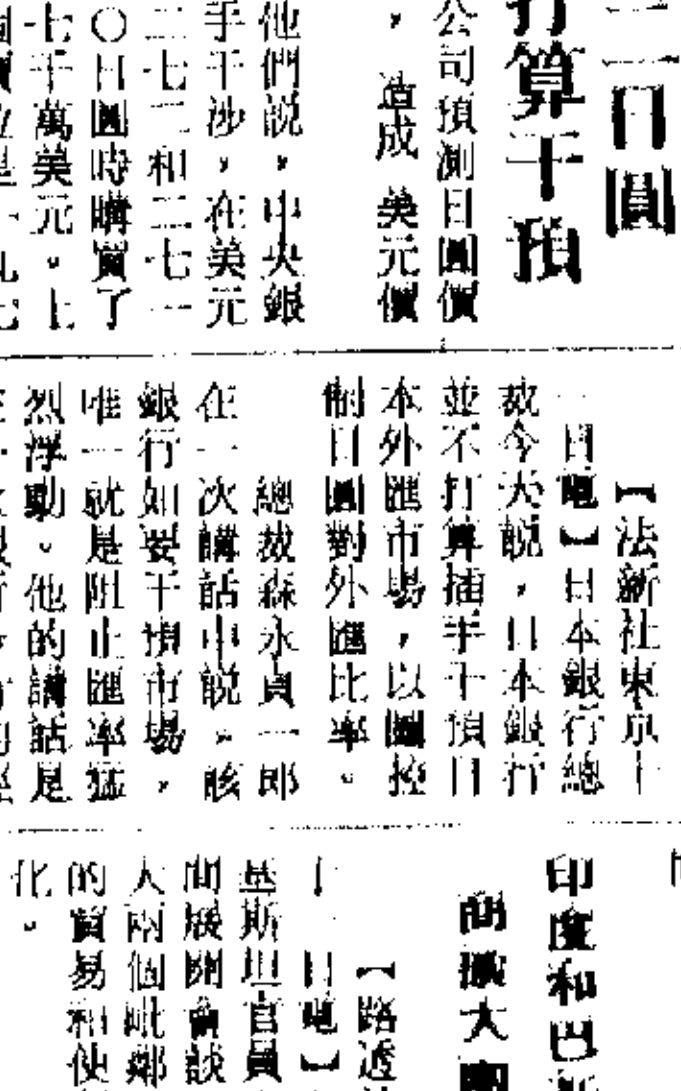 二日圓
打算干預
公司預測日圓價
，造成美元價
他們說，中央銀
手干涉，在美元
二七二和二七一
〇日圓時購買了
七千萬美元。上
【法新社東京十
一日電】日本銀行總
裁今天說，日本銀行
並不打算插手干預日
本外匯市場，以圖控
制日圓對外匯比率。
總裁森永貞一郎
在一次講話中說。該
銀行如要干預市場，
唯一就是阻止匯率猛
烈浮動。他的講話是
印度和巴
商擴大
【路透
一日電】
基斯坦官員
間展開會談
大兩個毗鄰
的貿易和使
化。